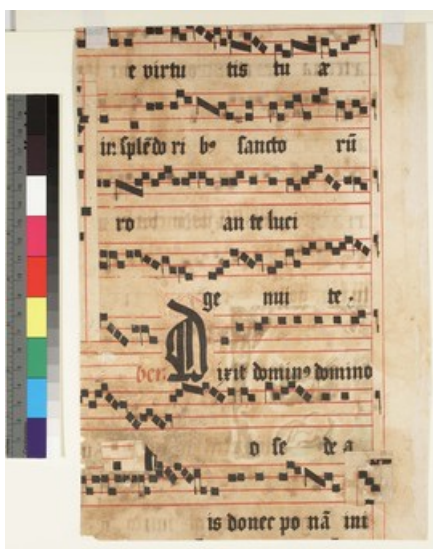 e virtu tis tu æ
in splēdo ri bꝰ sancto rū
ro an te luci
ge nui te.
ver. Dixit dominꝰ domino
o se de a
is donec po nā ini